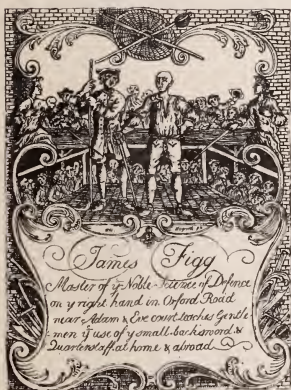 James Figg
Master of yͤ Noble Science of Defence
on yͤ right hand in Oxford Road
near Adam & Eve court teaches Gentle
men yͤ use of yͤ small backsword &
Quarterstaff at home & abroad